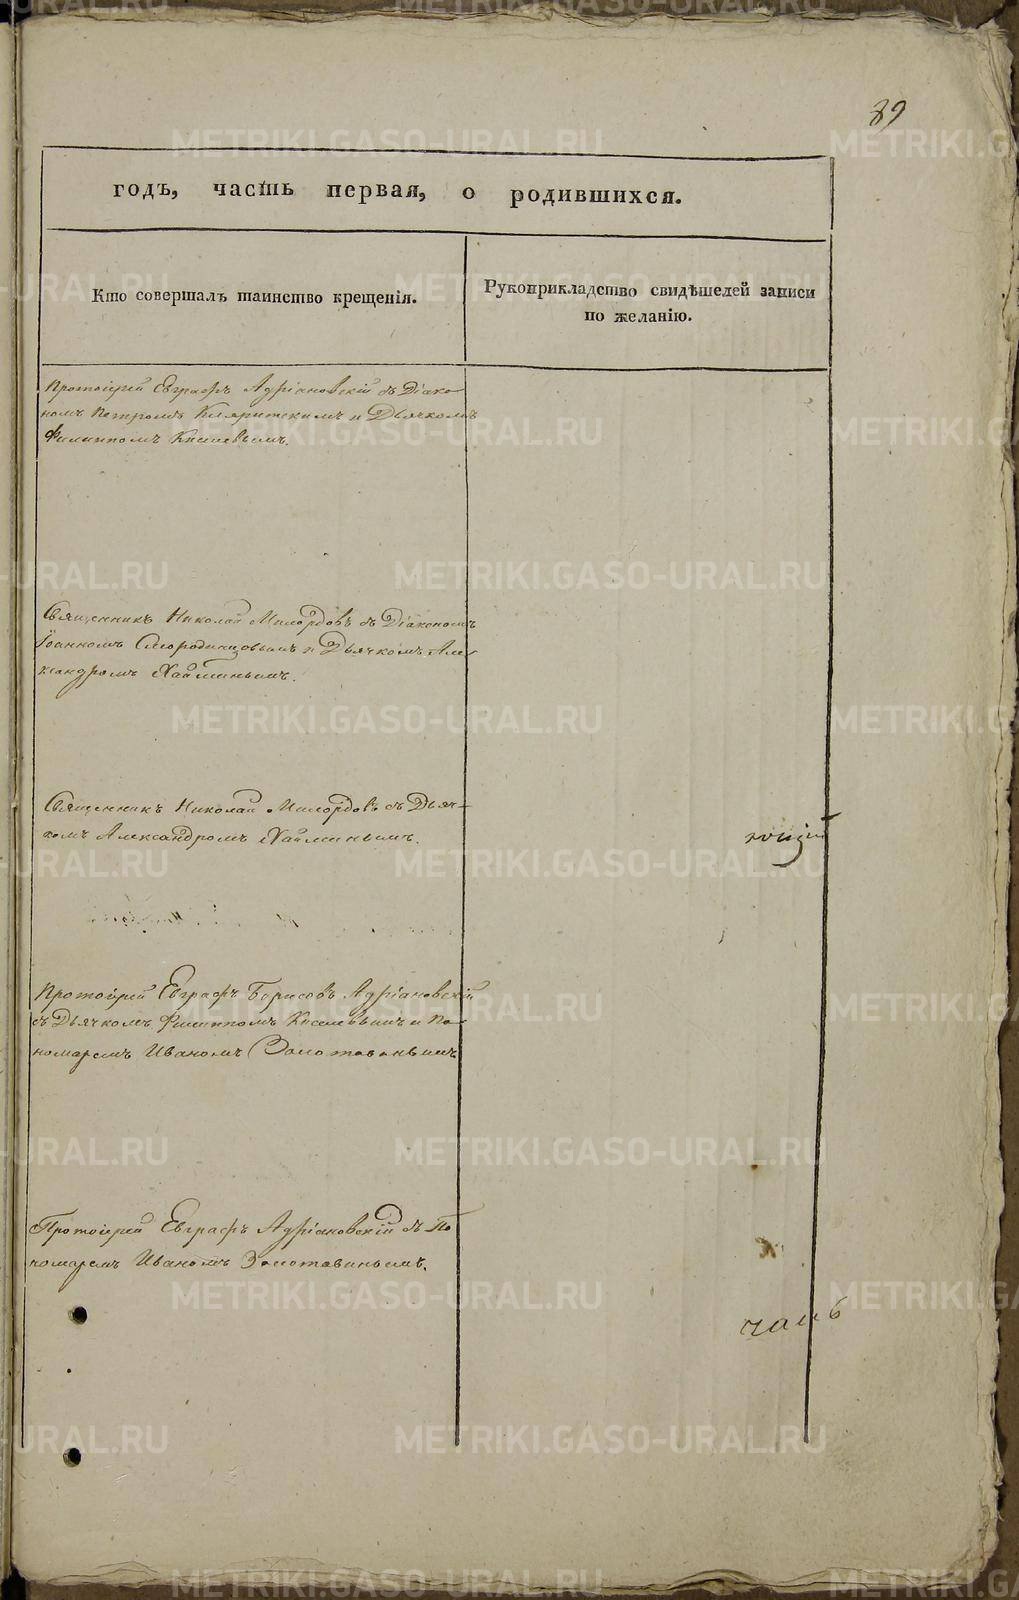 89
годъ, часть первая, о родившихся.
Кто совершалъ таинство крещенія.
Рукоприкладство свидѣтелей записи
по желанію.
Протоіерей Евграфъ Адріановскій съ Діако-
номъ Петромъ и Дьячкомъ
Филиппомъ Киселевымъ.
Священникъ Николай Милордовъ съ Діакономъ
Іоанномъ Смородинцовымъ и Дьячкомъ Але-
ксандромъ Хайминымъ.
Священникъ Николай Милордовъ съ Дьяч-
комъ Александромъ Хайминымъ.
Протоіерей Евграфъ Борисовъ Адріановскій
съ Дьячкомъ Филиппомъ Киселевымъ и По-
номаремъ Иваномъ Золотавинымъ
Протоіерей Евграфъ Адріановскій съ По
номаремъ Иваномъ Золотавинымъ.
METRIKI.GASO-URAL.RU